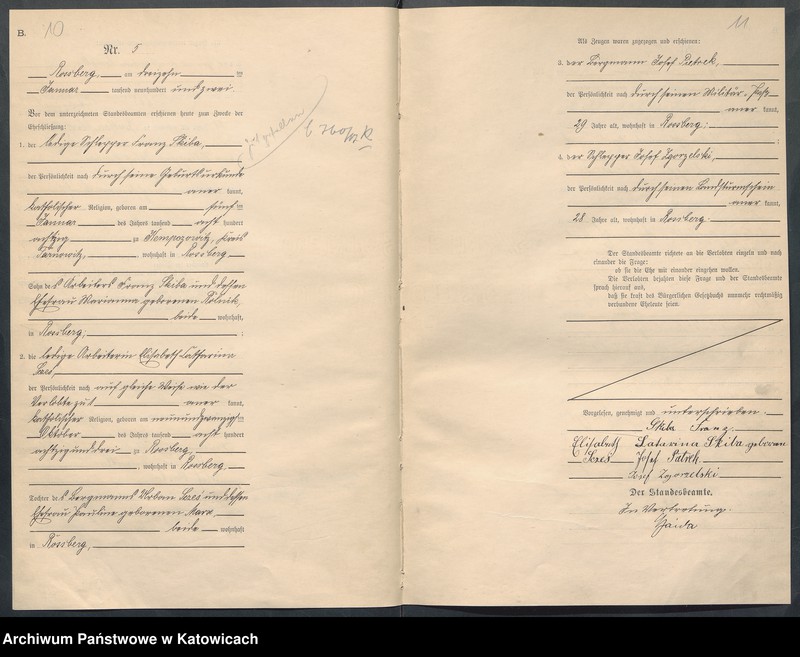 B. 10
Nr. 5
Rossberg, am dreizehn ten
Januar tausend neunhundert und zwei
Vor dem unterzeichneten Standesbeamten erschienen heute zum Zwecke der
Eheschließung:
1. der ledige Schlepper Franz Skiba,
der Persönlichkeit nach durch seine Geburtsurkunde
aner kannt,
katholischer Religion, geboren am fünf ten
Januar des Jahres tausend acht hundert
achtzig zu Kempczowitz, Kreis
Tarnowitz, wohnhaft in Rossberg
Sohn des Arbeiters Franz Skiba und dessen
Ehefrau Marianna geborenen
beide wohnhaft
in Rossberg;
2. die ledige Arbeiterin Elisabeth Catharina
der Persönlichkeit nach auf gleiche Weise wie der
Verlobte zu 1 aner kannt,
katholischer Religion, geboren am neunundzwanzigs ten
Oktober des Jahres tausend acht hundert
achtzigunddrei zu Rossberg,
wohnhaft in Rossberg,
Tochter des Bergmanns Urban und dessen
Ehefrau Pauline geborenen Marx
beide wohnhaft
in Rossberg,
11
Als Zeugen waren zugezogen und erschienen:
3. der Bergmann Josef Pietrek,
der Persönlichkeit nach durch seinen Militär-Paß
aner kannt,
29 Jahre alt, wohnhaft in Rossberg;
4. der Schlepper Josef Zgorzelski,
der Persönlichkeit nach durch seinen Landsturmschein
aner kannt,
28 Jahre alt, wohnhaft in Rossberg.
Der Standesbeamte richtete an die Verlobten einzeln und nach
einander die Frage:
ob sie die Ehe mit einander eingehen wollen.
Die Verlobten bejahten diese Frage und der Standesbeamte
sprach hierauf aus,
daß sie kraft des Bürgerlichen Gesetzbuchs nunmehr rechtmäßig
verbundene Eheleute seien.
Vorgelesen, genehmigt und unterschrieben
Skiba Franz
Elisabeth Katarina Skiba geboren
Josef Pietrek
Josef Zgorzelski
Der Standesbeamte.
In Vertretung.
Gaida
Archiwum Państwowe w Katowicach